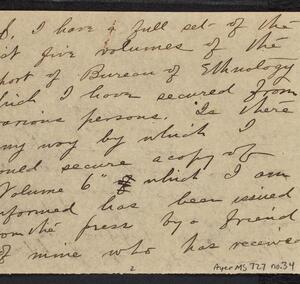 I have a full set of the
first five volumes of the
Report of Bureau of Ethnology
which I have secured from
various persons. Is there
any way by which I
could secure a copy of
"Volume 6" which I am
informed has been issued
from the press by a friend
of mine who has received
2
Ayer MS 727 no.34